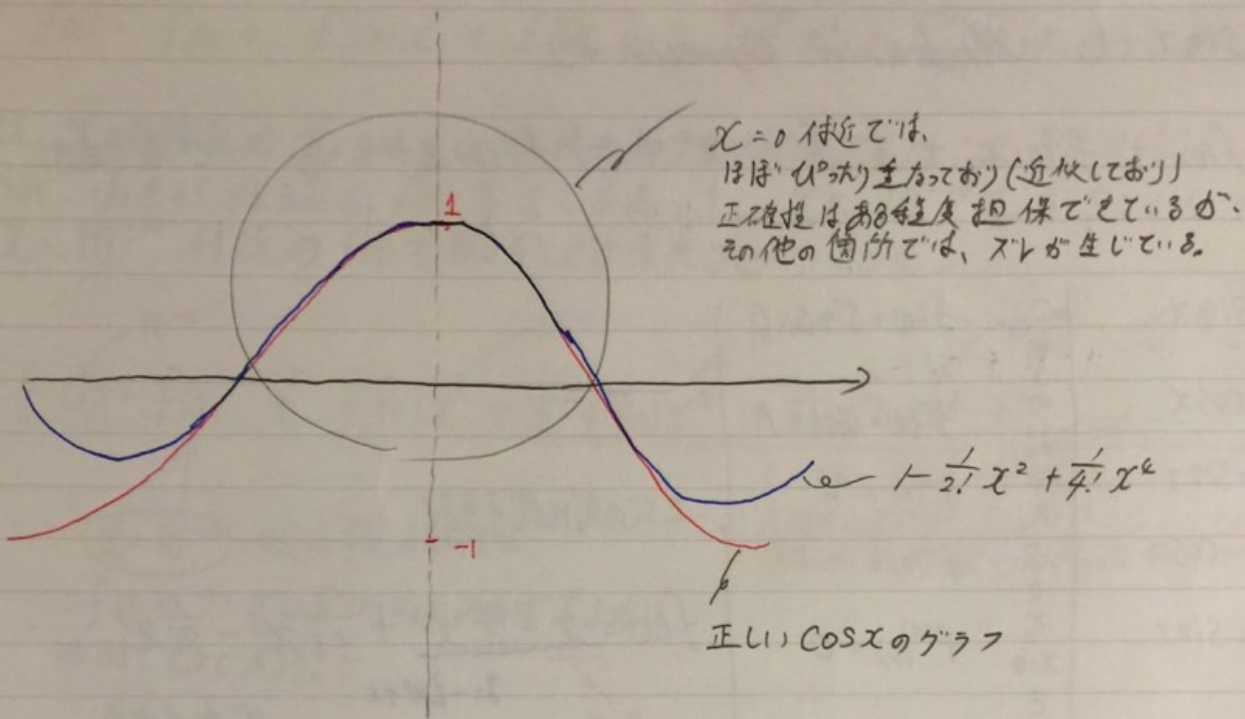 x=0 付近では、
ほぼぴったり重なっており(近似しており)
正確性はある程度担保できているが、
その他の箇所では、ズレが生じている。
1
1-1/2! x² + 1/4! x⁴
-1
正しいCOSxのグラフ